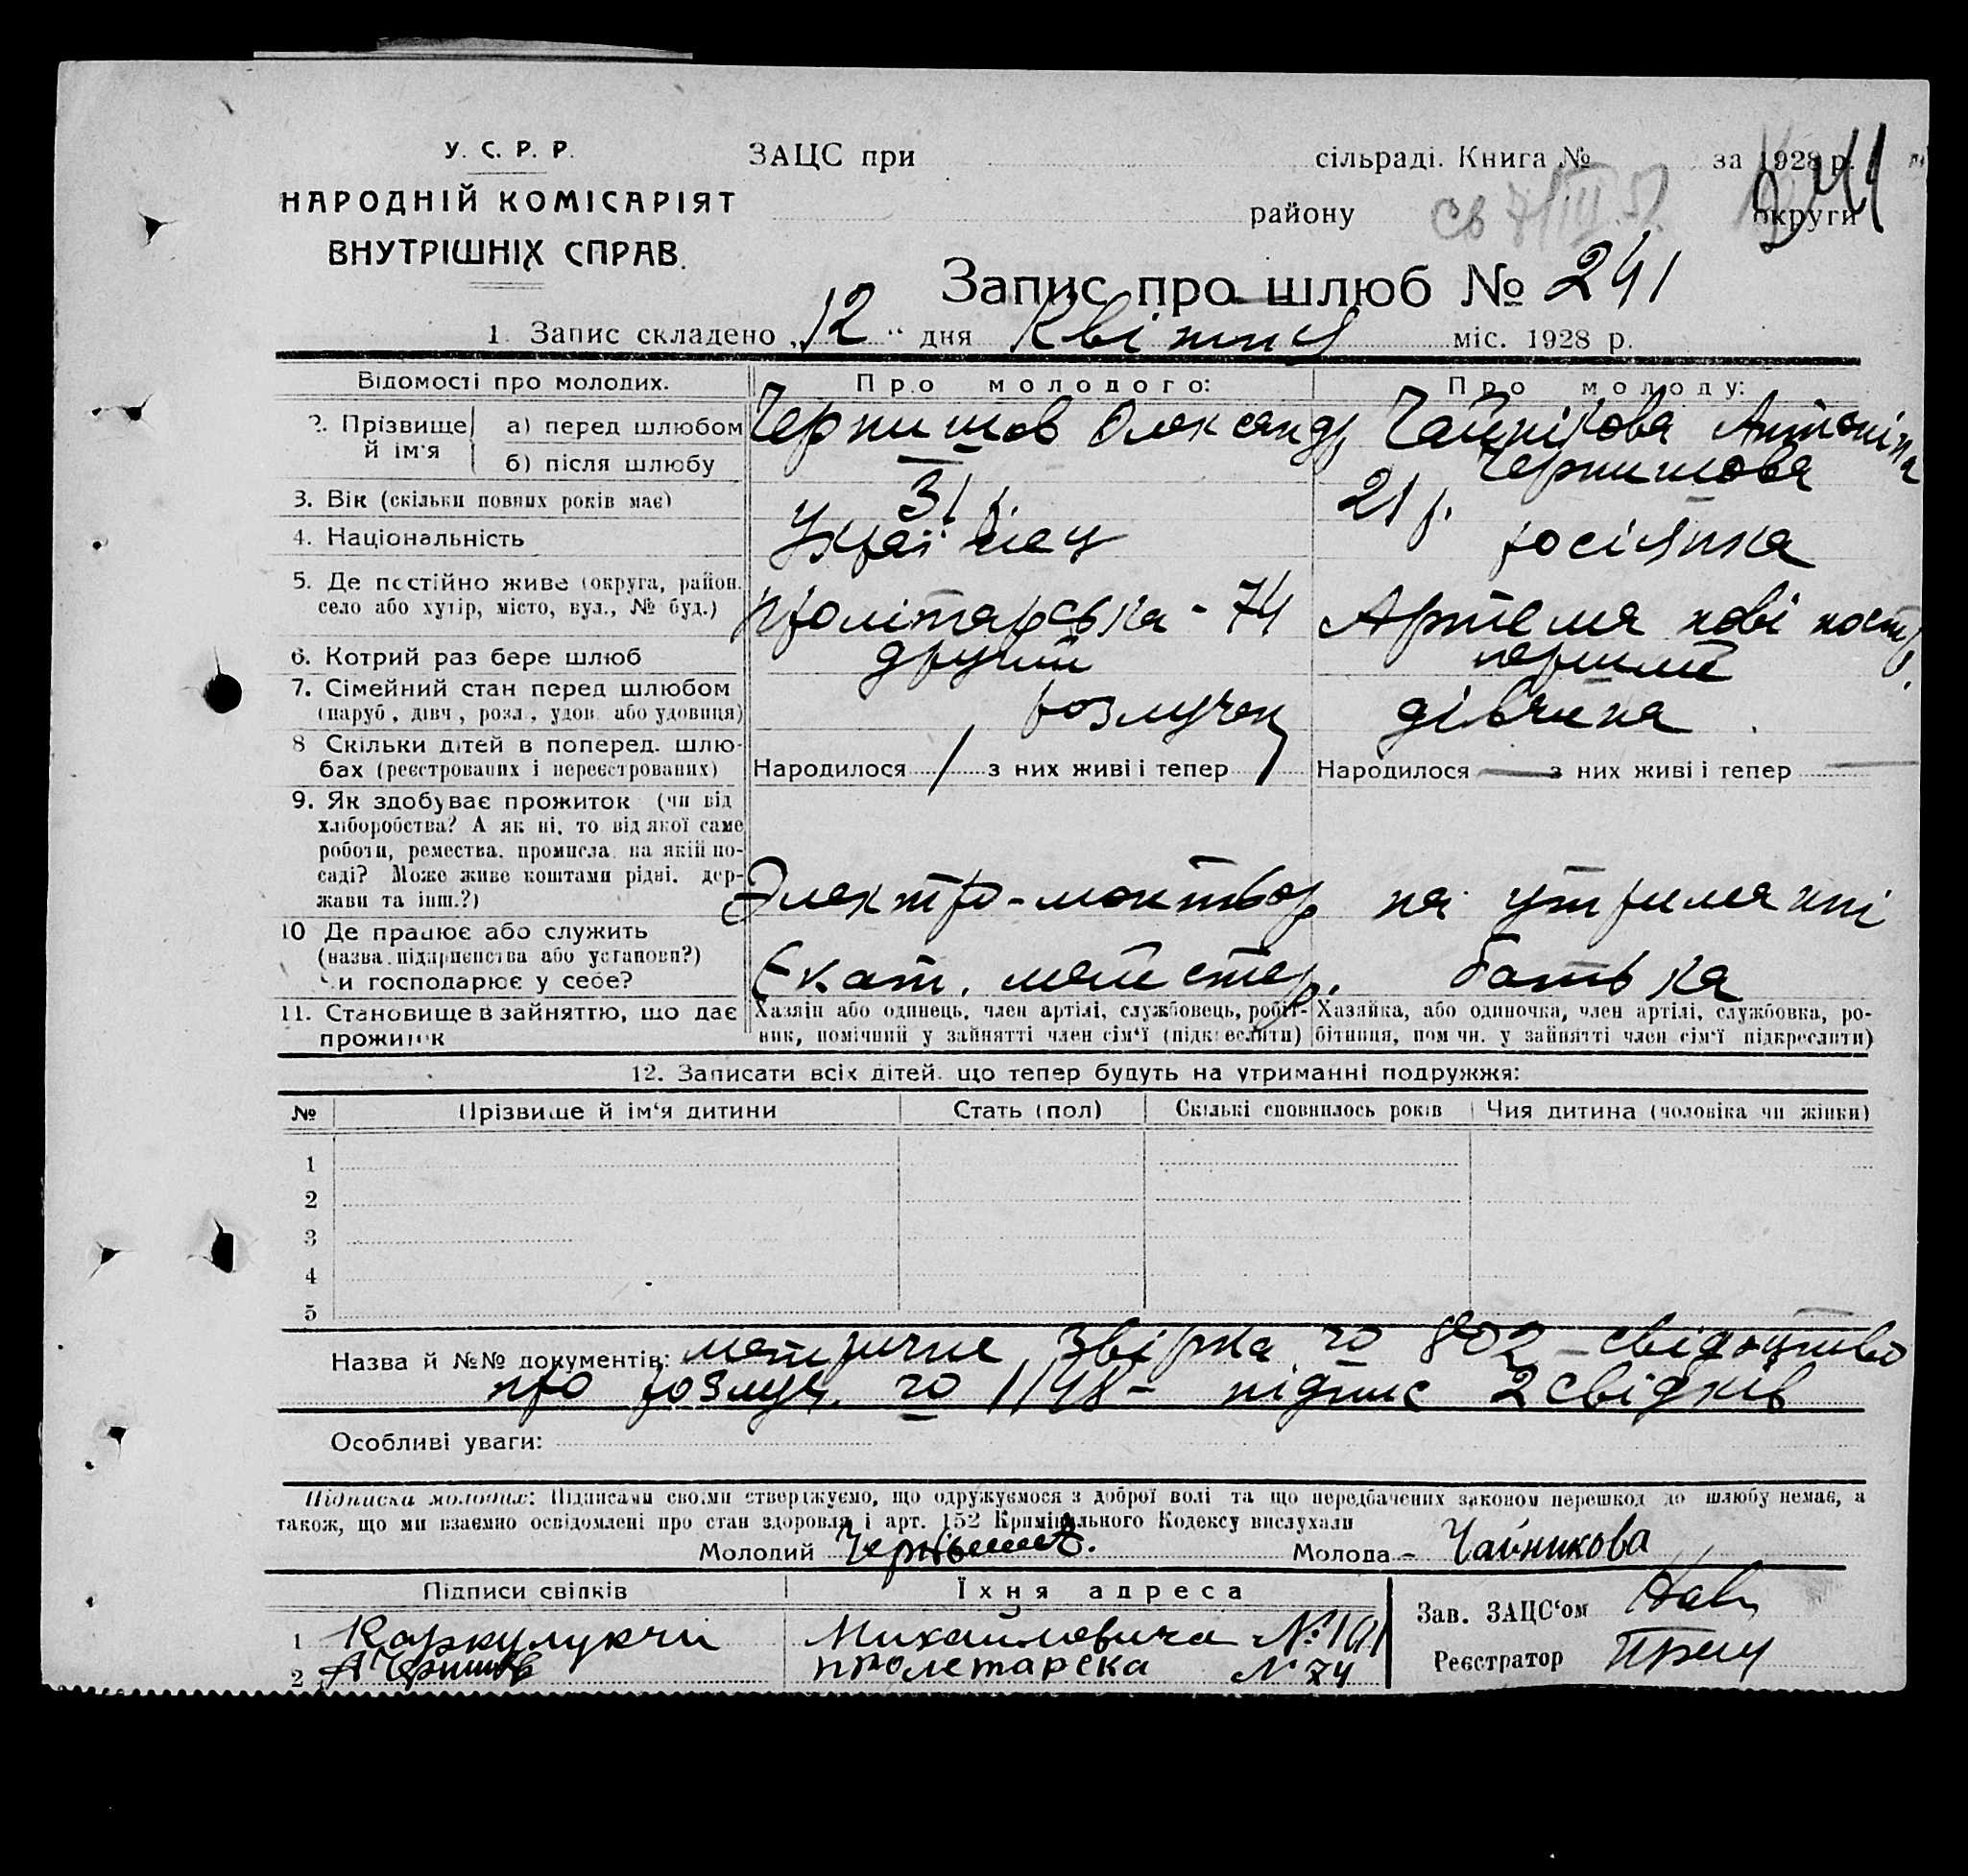 У. С. Р. Р.
НАРОДНІЙ КОМІСАРІЯТ
ВНУТРІШНІХ СПРАВ.
ЗАЦС при сільраді. Книга № за 1928 р.
району округи
241
Запис про шлюб № 241
1. Запис складено „12“ дня Квітня міс. 1928 р.
Відомості про молодих.
Про молодого:
Про молоду:
2. Прізвище й ім'я
а) перед шлюбом
Чернишов Олександр
Чайнікова Антоніна
б) після шлюбу
Чернишова
3. Вік (скільки повних років має)
31 р.
21 р.
4. Національність
Українец
росіянка
5. Де постійно живе (округа, район.
село або хутір, місто, вул., № буд.)
пролітарська - 74
Артема нові
6. Котрий раз бере шлюб
другий
перший
7. Сімейний стан перед шлюбом
(паруб., дівч., розл., удов. або удовиця)
розлучен
дівчина
8 Скільки дітей в поперед. шлю-
бах (реєстрованих і нереєстрованих)
Народилося 1 з них живі і тепер 1
Народилося — з них живі і тепер —
9. Як здобуває прожиток (чи від
хліборобства? А як ні, то від якої саме
роботи, ремества, промисла, на якій по-
саді? Може живе коштами рідні, дер-
жави та інш.?)
Электро-монтьор
на утриманні
10 Де працює або служить
(назва підприємства або установи?)
Чи господарює у себе?
Екат. майстер.
батька
11. Становище в зайняттю, що дає
прожиток
Хазяїн або одинець, член артілі, службовець, робіт-
ник, помічний у зайнятті член сім'ї (підкреслити)
Хазяйка, або одиночка, член артілі, службовка, ро-
бітниця, помічн. у зайнятті член сім'ї підкреслити)
12. Записати всіх дітей, що тепер будуть на утриманні подружжя:
№ Прізвище й ім'я дитини Стать (пол) Скількі сповнилось років Чия дитина (чоловіка чи жінки)
1
2
3
4
5
Назва й №№ документів: метричне звірка 802 - свідоцтво
про розлуч. 1148 - підпис 2 свідків
Особливі уваги:
Підписка молодих: Підписами своїми стверджуємо, що одружуємося з доброї волі та що передбачених законом перешкод до шлюбу немає, а
також, що ми взаємно освідомлені про стан здоровля і арт. 152 Кримінального Кодексу вислухали
Молодий Молода – Чайникова
Підписи свідків
Їхня адреса
1 Михайловича № 101
2 пролетарска № 74
Зав. ЗАЦС'ом
Реєстратор